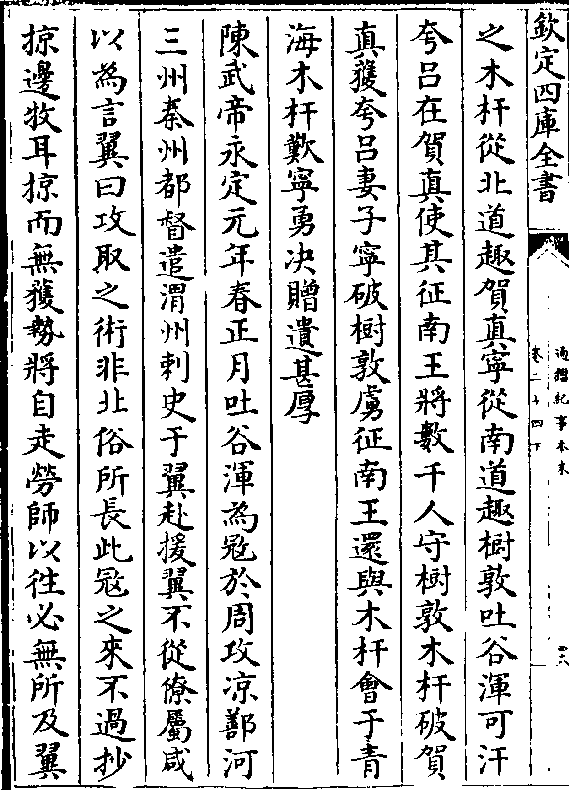 欽定四庫全書
通鑑紀事本末
卷二十四下
之木杆從北道趣賀真寧從南道趣樹敦吐谷渾可汗
夸呂在賀真使其征南王將數千人守樹敦木杆破賀
真獲夸呂妻子寧破樹敦虜征南王還與木杆會于青
海木杆歎寧勇决贈遺甚厚
陳武帝永定元年春正月吐谷渾為㓂於周攻凉鄯河
三州秦州都督遣渭州刺史于翼赴援翼不從僚屬咸
以為言翼曰攻取之術非北俗所長此㓂之來不過抄
掠邊牧耳掠而無獲勢將自走勞師以往必無所及翼